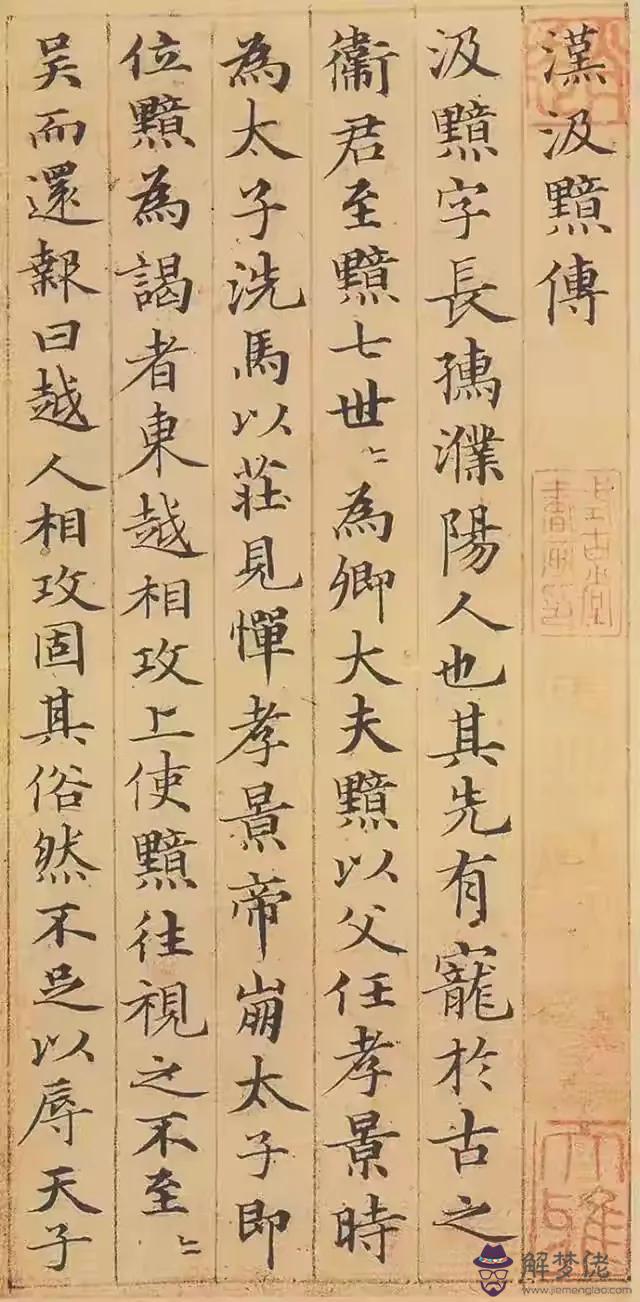 漢汲黯傳
汲黯字長孺濮陽人也其先有寵於古之
衞君至黯七世〻為卿大夫黯以父任孝景時
為太子洗馬以莊見憚孝景帝崩太子即
位黯為謁者東越相攻上使黯往視之不至〻
吳而還報曰越人相攻固其俗然不足以辱天子
解梦佬
www.jiemenglao.com